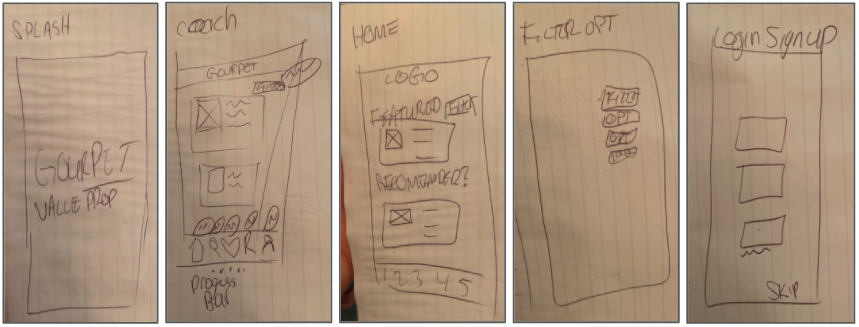 SPLASH
GOURPET
VALUE PROP
COACH
GOURPET
FILTER
PROGRESS
BAR
HOME
LOGO
FEATURED FILTER
RECOMENDED?
1 2 3 4 5
FILTER OPT
FILTER
OPT
OPT
Login Signup
SKIP